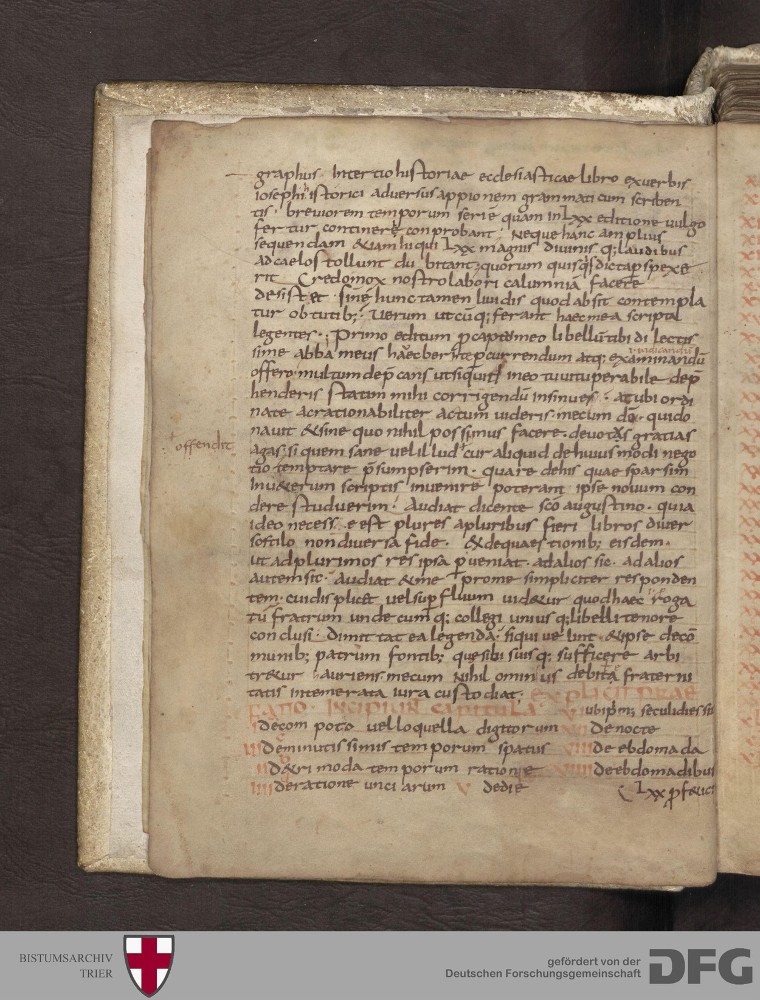 graphus · In tertio historiae ecclesiasticae libro ex verbis
iosephi istorici adversus appionem grammaticum scriben
tis · breviorem temporum seriẽ quam in Lxx editione vulgo
fertur continere conprobant · Neque hanc amplius
sequendam &iam hi qui Lxx magnis divinisq; laudibus
ad caelos tollunt dubitant; quorum quisquis dicta pspexe
rit Credo mox nostro labori calumniã facere
desistet · sine hunc tamen lividis quod absit contempla
tur obtutib; · Verum utcũq; ferant haec mea scripta
legentes ·; Primo editum p captu meo libellũ tibi dilectis
sime abba meus haec percurrendum atq; examinandũ
offero · multum dep̃cans ut siquid in eo tu vituperabile dep̃
henderis statim mihi corrigendũ insinues · at ubi ordi
nate ac rationabiliter actum videris · mecum dõ · qui do
navit & sine quo nihil possumus facere · devotas gratias
agas · si quem sane vel illud cur aliquid de huius modi nego
tio temptare p̃sumpserim · quare de his quae sparsim
in ueterum scriptis inveniri poterant ipse novum con
dere studuerim · Audiat dicente sc̃o augustino · quia
ideo necesse est plures a pluribus fieri libros diver
so stilo non diversa fide · & de quaestionib; eisdem ·
ut ad plurimos res ipsa pveniat · ad alios sic · ad alios
autem sic · Audiat & me pro me simpliciter responden
tem · cui displicet vel supfluum vid&ur quod haec roga
tũ fratrum undecumq; collegi unius q; libelli tenore
conclusi · Dimittat ea legendã · siqui velint · & ipse de cõ
munib; patrum fontib; que sibi suisq; sufficere arbi
tr&ur auriens · mecum Nihil ominus debitã fraterni
tatis intemerata iura custodiat · EXPLICIT PRAE
FATIO · INCIPIUNT CAPITULA · ubi prim; seculi dies sit
i De com poto vel loquella digitorum De nocte
ii De minutissimis temporum spatiis De ebdomada
De tri moda temporum ratione De ebdomadibus
iiii De ratione unciarum V De die Lxx
offendit
BISTUMSARCHIV
TRIER
gefördert von der
Deutschen Forschungsgemeinschaft
DFG